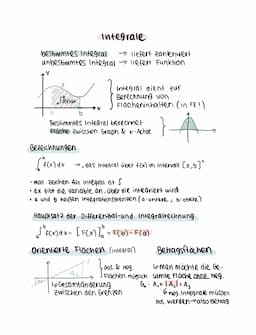 Integrale
bestimmtes Integral → liefert Zahlenwert
unbestimmtes Integral → liefert Funktion
Integral dient zur
Berechnung von
Flächeninhalten (in FE!)
a b x
Bestimmtes Integral berechnet
Fläche zwischen Graph & x-Achse
Bezeichnungen
∫ f(x) dx → „das Integral über f(x) im Intervall [a,b]"
• mat. Zeichen für Integral ist ∫
• dx gibt die Variable an, über die integriert wird
• a und b heißen Integrationsgrenzen (a=untere, b=obere)
Hauptsatz der Differential- und Integralrechnung
∫ f(x) dx = [F(x)] = F(b) - F(a)
Orientierte Flächen (Integral) Betragsflächen
pos & neg.
Flächen möglich
↳ Gesamtänderung
zwischen den Grenzen
↳ Man möchte die Ge-
samte Fläche ohne neg.
A₁ + |A₂| + A₃
↳ neg Integrale müssen
pos. werden